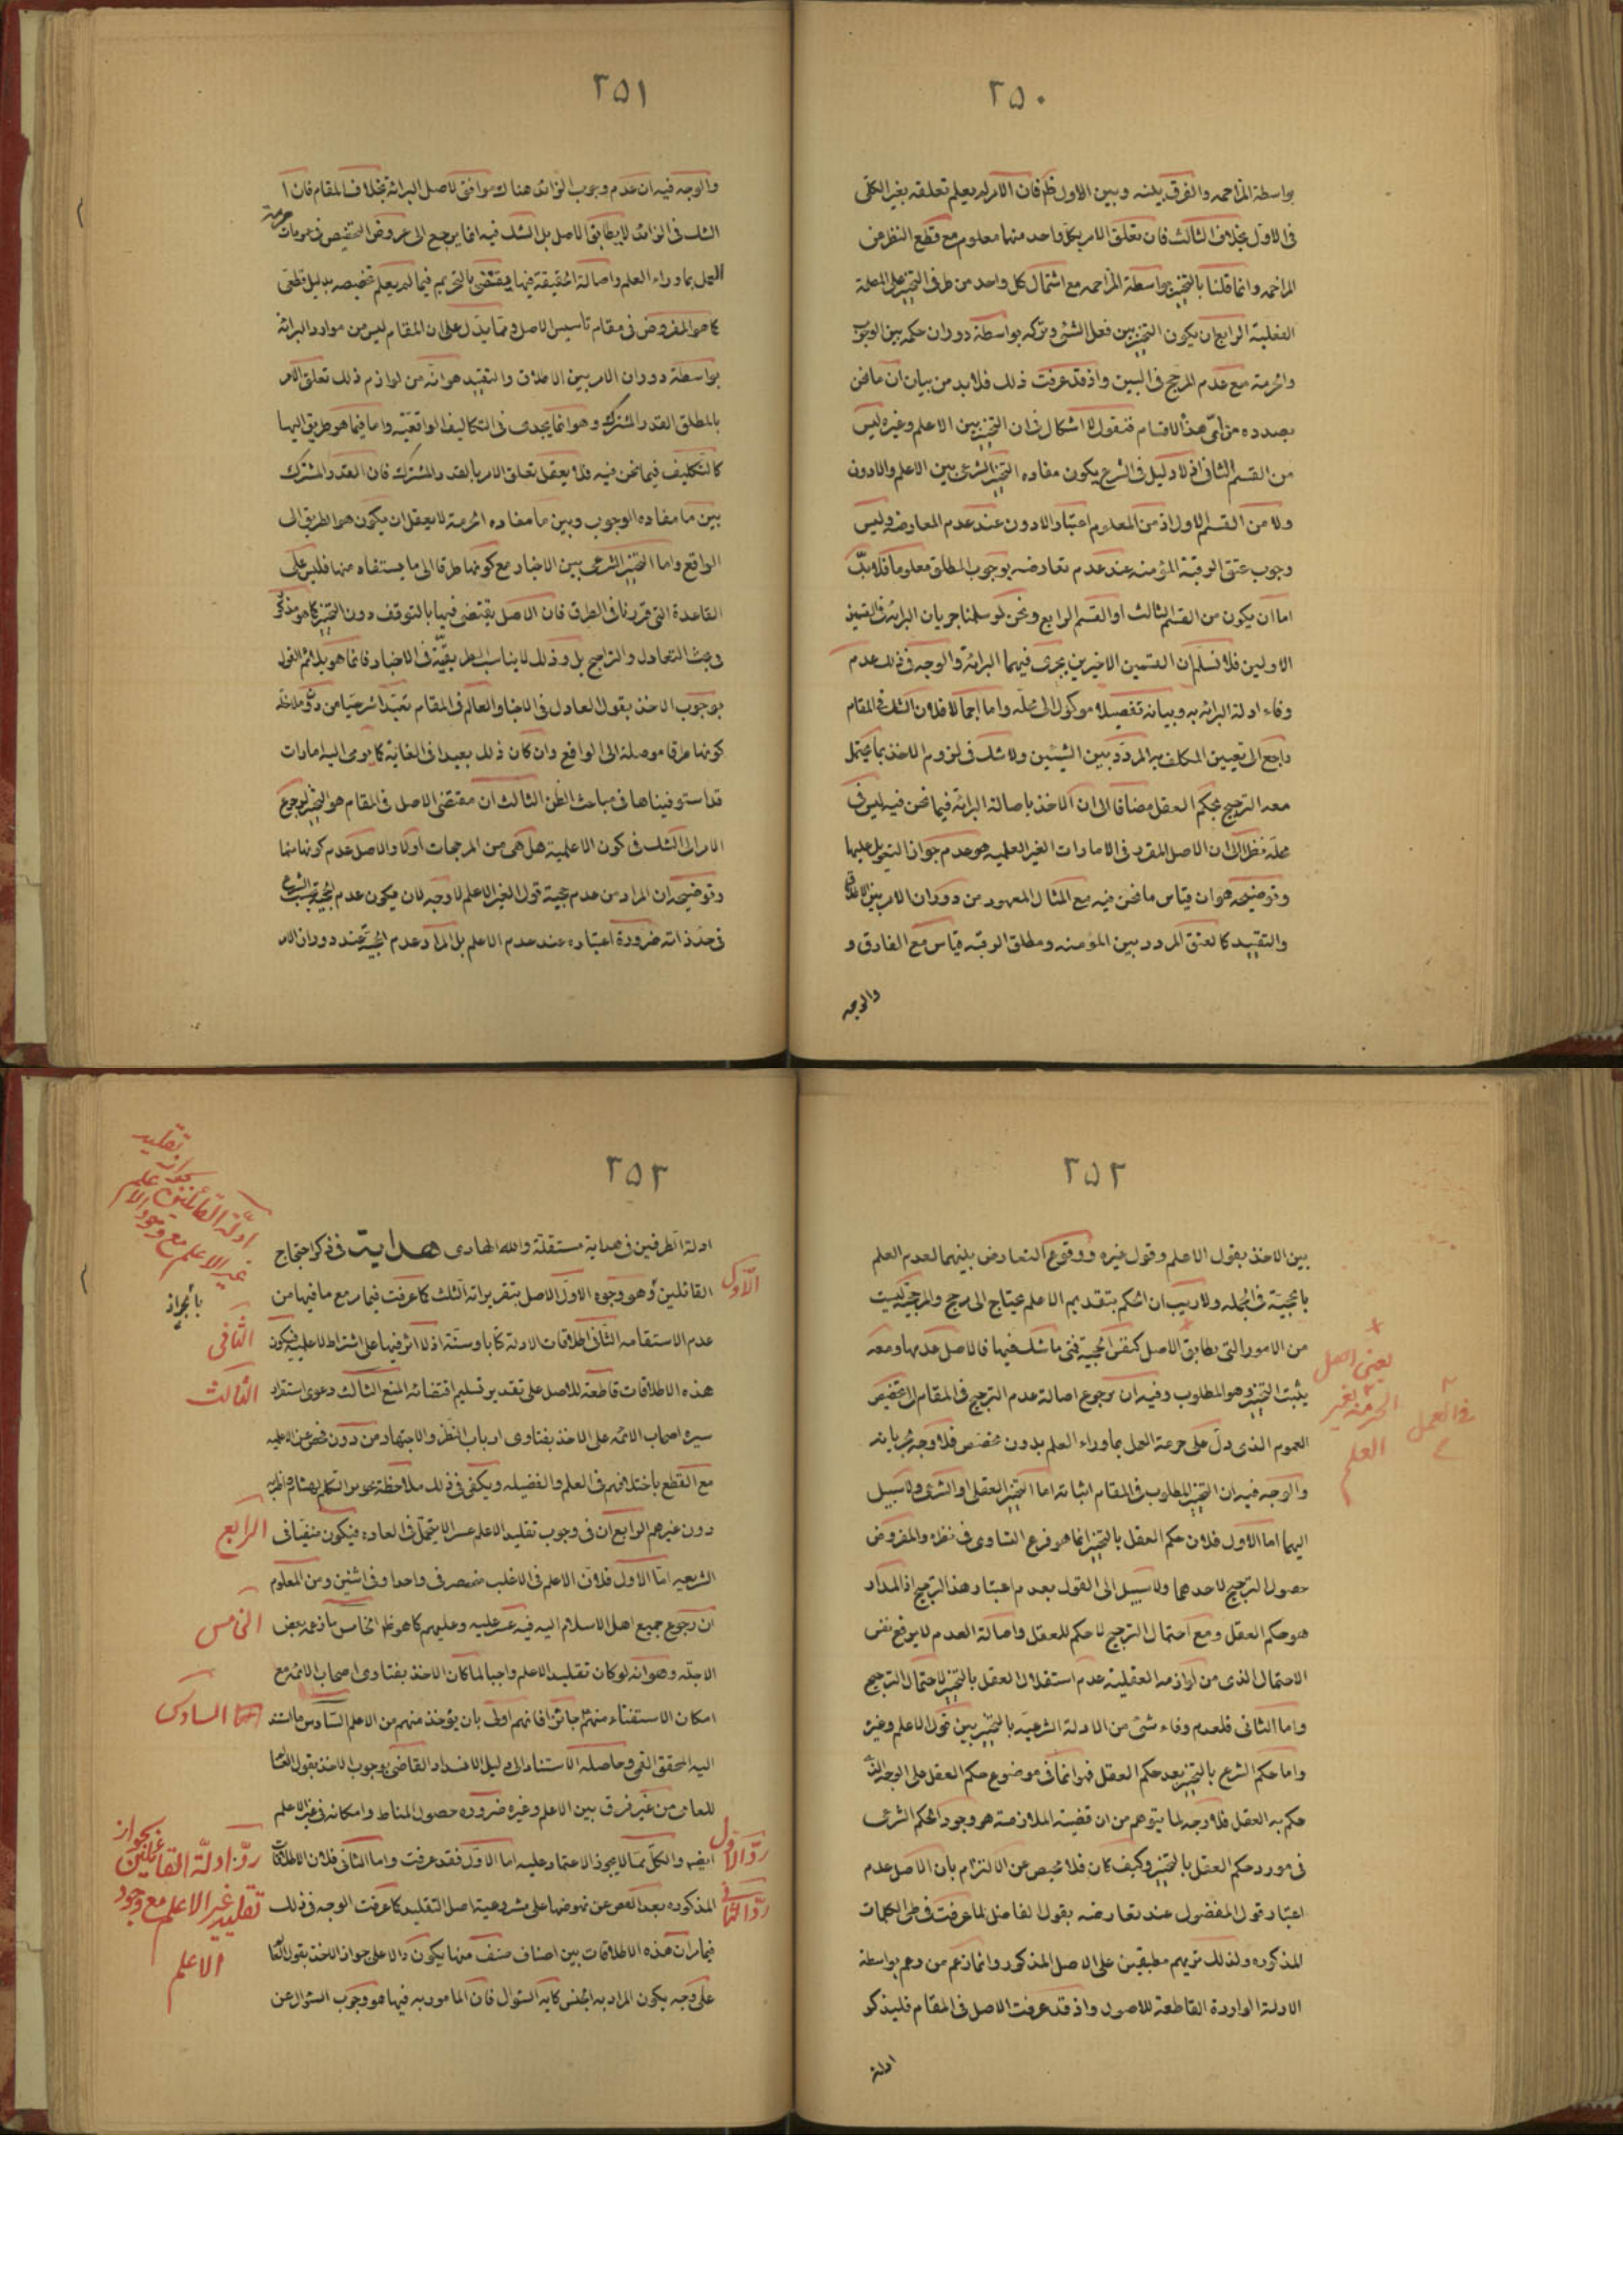 ٢٥٠
بواسطة المزاحمه والفرق بينه وبين الاول ظ فان الامر لم يعلم تعلقه بغير الكلى
فى الاول بخلاف الثالث فان تعلق الامر بكل واحد منها معلوم مع قطع النظر عن
المزاحمه وانما قلنا بالتخيير بواسطة المزاحمه مع اشتمال كل واحد من طرفى التخيير على المصلحة
الفعلية الرابع ان يكون التخيير بين فعل الشئ وتركه بواسطة دوران حكمه بين الوجوب
والحرمة مع عدم المرجح فى البين واذ قد عرفت ذلك فلا بد من بيان ان ما نحن
بصدده من اىّ هذه الاقسام فنقول لا اشكال فى ان التخيير بين الاعلم وغيره ليس
من القسم الثانى اذ لا دليل فى الشرع يكون مفاده التخيير الشرعى بين الاعلم والادون
ولا من القسم الاول اذ من المعلوم اعتبار الادون عند عدم المعارضة وليس
وجوب عتق الرقبة المؤمنه عند عدم تعارضه بوجوب المطلق معلوما فلا بدّ
اما ان يكون من القسم الثالث او القسم الرابع ونحن لو سلمنا جريان البرائة فى القسمين
الاولين فلا نسلم ان القسمين الاخيرين يجرى فيهما البرائة والوجه فى ذلك عدم
وفاء ادلة البرائه به وبيانه تفصيلا موكول الى محلّه واما اجمالا فلان الشك فى المقام
راجع الى تعيين المكلف به المردّد بين الشيئين ولا شك فى لزوم الاخذ بما يحتمل
معه الترجيح بحكم العقل مضافا الى ان الاخذ باصالة البرائة فيما نحن فيه ليس فى
محلّه نظرا الى ان الاصل المقرر فى الامارات الغير العلميه هو عدم جواز التعويل عليها
وتوضيحه هو ان قياس ما نحن فيه مع المثال المعهود من دوران الامر بين الاطلاق
والتقييد كالعتق المردد بين المؤمنه ومطلق الرقبه قياس مع الفارق و
والوجه
٢٥١
والوجه فيه ان عدم وجوب الزائد هناك موافق لاصل البرائة بخلاف المقام فان ا
الشك فى الزائد لا يطابق الاصل بل الشك فيه انما يرجع الى عروض التخصيص فى عمومات حرمة
العمل بما وراء العلم واصالة الحقيقة فيها يقتضى بالتحريم فيما لم يعلم تخصيصه بدليل قطعى
كما هو المفروض فى مقام تاسيس الاصل ومما يدل على ان المقام ليس من موارد البرائة
بواسطة دوران الامر بين الاطلاق والتقييد هو انّه من لوازم ذلك تعلق الامر
بالمطلق القدر المشترك وهو انما يجدى فى التكاليف الواقعيّه واما فيما هو طريق اليها
كالتكليف فيما نحن فيه فلا يعقل تعلق الامر بالقدر المشترك فان القدر المشترك
بين ما مفاده الوجوب وبين ما مفاده الحرمة لا يعقل ان يكون هو الطريق الى
الواقع واما التخيير الشرعى بين الاخبار مع كونها طرقا الى ما يستفاد منها فليس على
القاعدة التى قررنا فى الطرق فان الاصل يقتضى فيها بالتوقف دون التخيير كما هو مذكور
فى بحث التعادل والتراجيح بل وذلك لا يناسب الطريقيّة فى الاخبار فانما هو يلائم القول
بوجوب الاخذ بقول العادل فى الاخبار والعالم فى المقام تعبّدا شرعيا من دون ملاحظة
كونها طرقا موصلة الى الواقع وان كان ذلك بعيدا فى الغاية كما يومى اليه امارات
قد استوفيناها فى مباحث الظن الثالث ان مقتضى الاصل فى المقام هو التخيير لرجوع
الامر الى الشك فى كون الاعلمية هل هى من المرجحات اولا والاصل عدم كونها منها
وتوضيحه ان المراد من عدم حجية قول الغير الاعلم لا وجه لان يكون عدم الحجية بحسب الشرع
فى حدّ ذاته ضرورة اعتباره عند عدم الاعلم بل المراد عدم الحجية عند دوران الامر
٢٥٢
بين الاخذ بقول الاعلم وقول غيره ووقوع التعارض بينهما لعدم العلم
بالحجيّة فى الجمله ولا ريب ان الحكم بتقديم الاعلم يحتاج الى مرجح والمرجحية ليست
من الامور التى يطابق الاصل كنفس الحجية فمتى ما شك فيها فالاصل عدمها ومعه
يثبت التخيير وهو المطلوب وفيه ان مرجوع اصالة عدم الترجيح فى المقام الى تخصيص
العموم الذى دلّ على حرمة العمل بما وراء العلم بدون مخصّص فلا وجه لجريانه
والوجه فيه ان التخيير المطلوب فى المقام اثباته اما التخيير العقلى او الشرعى ولا سبيل
اليهما اما الاول فلان حكم العقل بالتخيير انما هو فرع التساوى فى نظره والمفروض
حصول الترجيح لاحدهما ولا سبيل الى القول بعدم اعتبار هذا الترجيح اذ المدار
هو حكم العقل ومع احتمال الترجيح لا حكم للعقل واصالة العدم لا يرفع نفس
الاحتمال الذى من لوازمه العقلية عدم استقلال العقل بالتخيير لاحتمال الترجيح
واما الثانى فلعدم وفاء شئ من الادلة الشرعيّة بالتخيير بين قول الاعلم وغيره
واما حكم الشرع بالتخيير بعد حكم العقل فهو انما فى موضوع حكم العقل على الوجه الذى
حكم به العقل فلا وجه لما يتوهم من ان قضية الملازمة هو وجود الحكم الشرعى
فى مورد حكم العقل بالتخيير وكيف كان فلا محيص عن الالتزام بان الاصل عدم
اعتبار قول المفضول عند تعارضه بقول الفاضل لما عرفت فى طى الكلمات
المذكوره ولذلك تريهم مطبقين على الاصل المذكور وانما زعم من زعم بواسطة
الادلة الواردة القاطعة للاصول واذ قد عرفت الاصل فى المقام فليذكر
ادلة
يعنى اصل
الحرمة بغير
العلم
فى العمل
٢٥٣
ادلة الطرفين فى هداية مستقلّة والله الهادى هداية فى ذكر احتجاج
القائلين وهو وجوه الاول الاصل بتقريراته الثلث كما عرفت فيما مر مع ما فيها من
بالجواز
عدم الاستقامه الثانى اطلاقات الادلة كتابا وسنّة اذ لا اثر فيها على اشتراط الاعلمية فيكون
هذه الاطلاقات قاطعة للاصل على تقدير تسليم اقتضائه المنع الثالث دعوى استقرار
سيرة اصحاب الائمه على الاخذ بفتاوى ارباب النظر والاجتهاد من دون فحص عن الاعلميه
مع القطع باختلافهم فى العلم والفضيله ويكفى فى ذلك ملاحظة
دون غيرهم الرابع ان فى وجوب تقليد الاعلم عسرا لا يتحمل فى العاده فيكون منفيا فى
الشريعه امّا الاول فلان الاعلم فى الاغلب منحصر فى واحد او فى اثنين ومن المعلوم
ان رجوع جميع اهل الاسلام اليه فيه عسر عليه وعليهم كما هو ظ الخامس ما زعمه بعض
الاجلّه وهو انه لو كان تقليد الاعلم واجبا لما كان الاخذ بفتاوى اصحاب الائمه مع
امكان الاستفتاء منهم جائزا فانهم اولى بان يؤخذ منهم من الاعلم السادس ما استند
اليه المحقق القمى وحاصله الاستناد الى دليل الانسداد القاضى بوجوب الاخذ بقول العالم
للعامى من غير فرق بين الاعلم وغيره ضرورة حصول المناط وامكانه فى غير الاعلم
ايضا والكلّ ممّا لا يجوز الاعتماد عليه اما الاول فقد عرفت واما الثانى فلان الاطلاقات
المذكوره بعد الغض عن نهوضها على مشروعية اصل التقليد كما عرفت الوجه فى ذلك
فيما مر ان هذه الاطلاقات بين اصناف صنف منها يكون دالا على جواز الاخذ بقول العالم
على وجه يكون المراد به الجنس كاية السؤال فان المامور به فيها هو وجوب السؤال عن
ادلّة القائلين بجواز تقليد
غير الاعلم مع وجود الاعلم
الاول
الثانى
الثالث
الرابع
الخامس
السادس
ردّ الاول
ردّ الثانى
ردّ ادلّة القائلين بجواز
تقليد غير الاعلم مع وجود
الاعلم